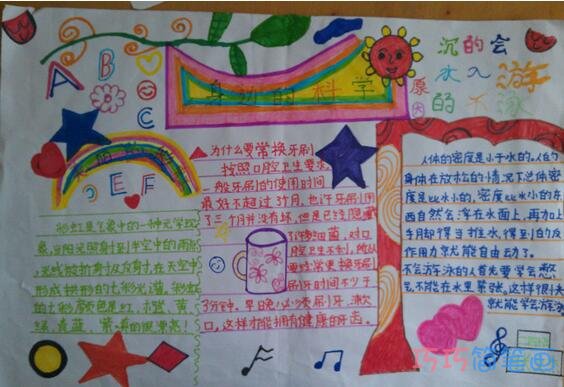 A B C
D E F
身边的科学
原因
沉的会游
水入的不泳
为什么要常换牙刷
按照口腔卫生要求,
一般牙刷的使用时间
最好不超过3个月,也许牙刷用
了三个月并没有坏,但是已经隐藏
了许多细菌,对口
腔卫生不利,所以
要经常更换牙刷
刷牙时间不少于
3分钟。早晚必须刷牙、漱
口,这样才能拥有健康的牙齿。
彩虹是气象中的一种光学现
象,当阳光照射到半空中的雨
光线被折射及反射,在天空中
形成拱形的七彩光谱,彩虹
的七彩颜色是红、橙、黄、
绿、青、蓝、紫
人体的密度是小于水的。人的
身体在放松的情况下总体密
度是比水小的,密度比水小的东
西自然会浮在水面上,再加上
手用脚得当推水,得到的反
作用力就能自由动了。
不会游泳的人首先要学会憋
气,不能在水里紧张。这样很快
就能学会游泳
巧巧简笔画